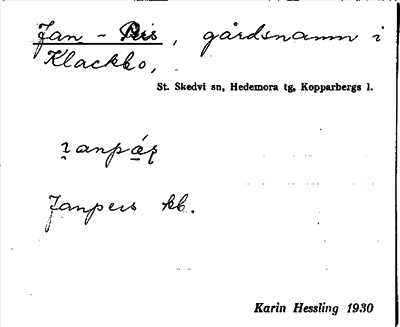 Jan-Pers, gårdsnamn i
Klackbo,
St. Skedvi sn, Hedemora tg, Kopparbergs l.
Janpers kb.
Karin Hessling 1930